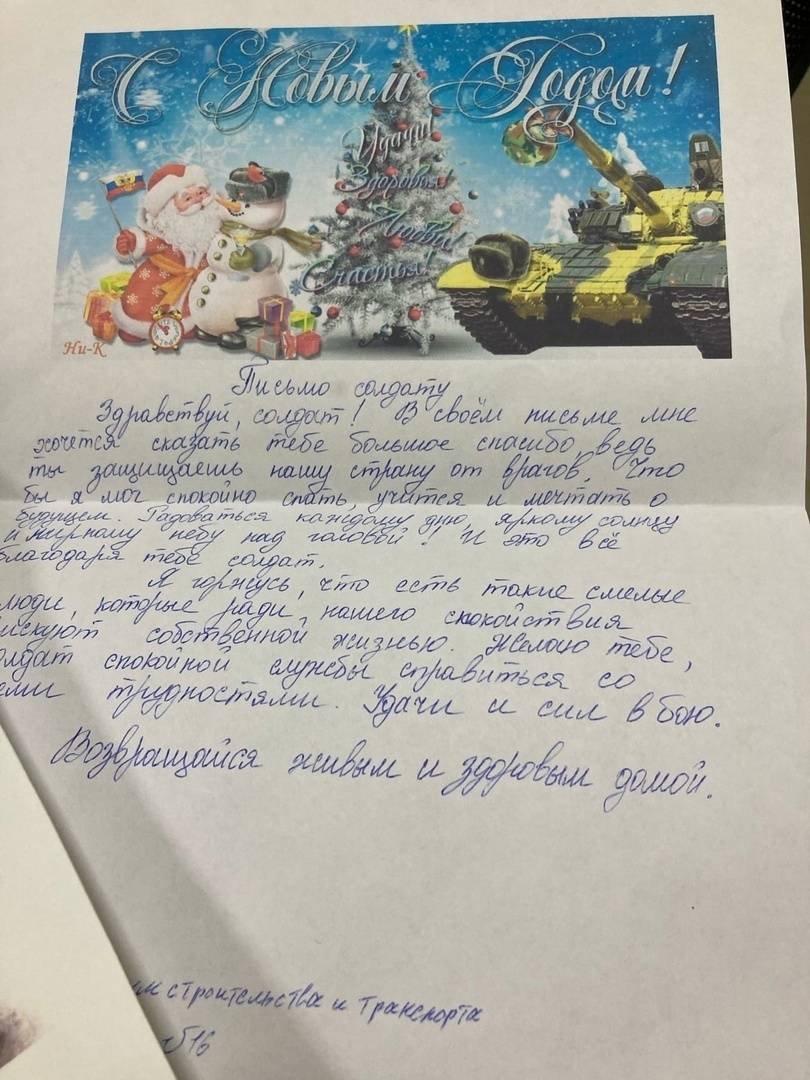 С Новым Годом!
Удачи!
Здоровья!
Любви!
Счастья!
Ни-К
Письмо солдату
Здравствуй, солдат! В своём письме мне
хочется сказать тебе большое спасибо ведь
ты защищаешь нашу страну от врагов. Что
бы я мог спокойно спать, учится и мечтать о
будущем. Радоваться каждому дню, яркому солнцу
и мирному небу над головой! И это всё
благодаря тебе солдат.
Я горжусь, что есть такие смелые
люди, которые ради нашего спокойствия
искуют собственной жизнью. Желаю тебе,
олдат спокойной службы справиться со
еми трудностями. Удачи и сил в бою.
Возвращайся живым и здоровым домой.
ум строительства и транспорта
б16